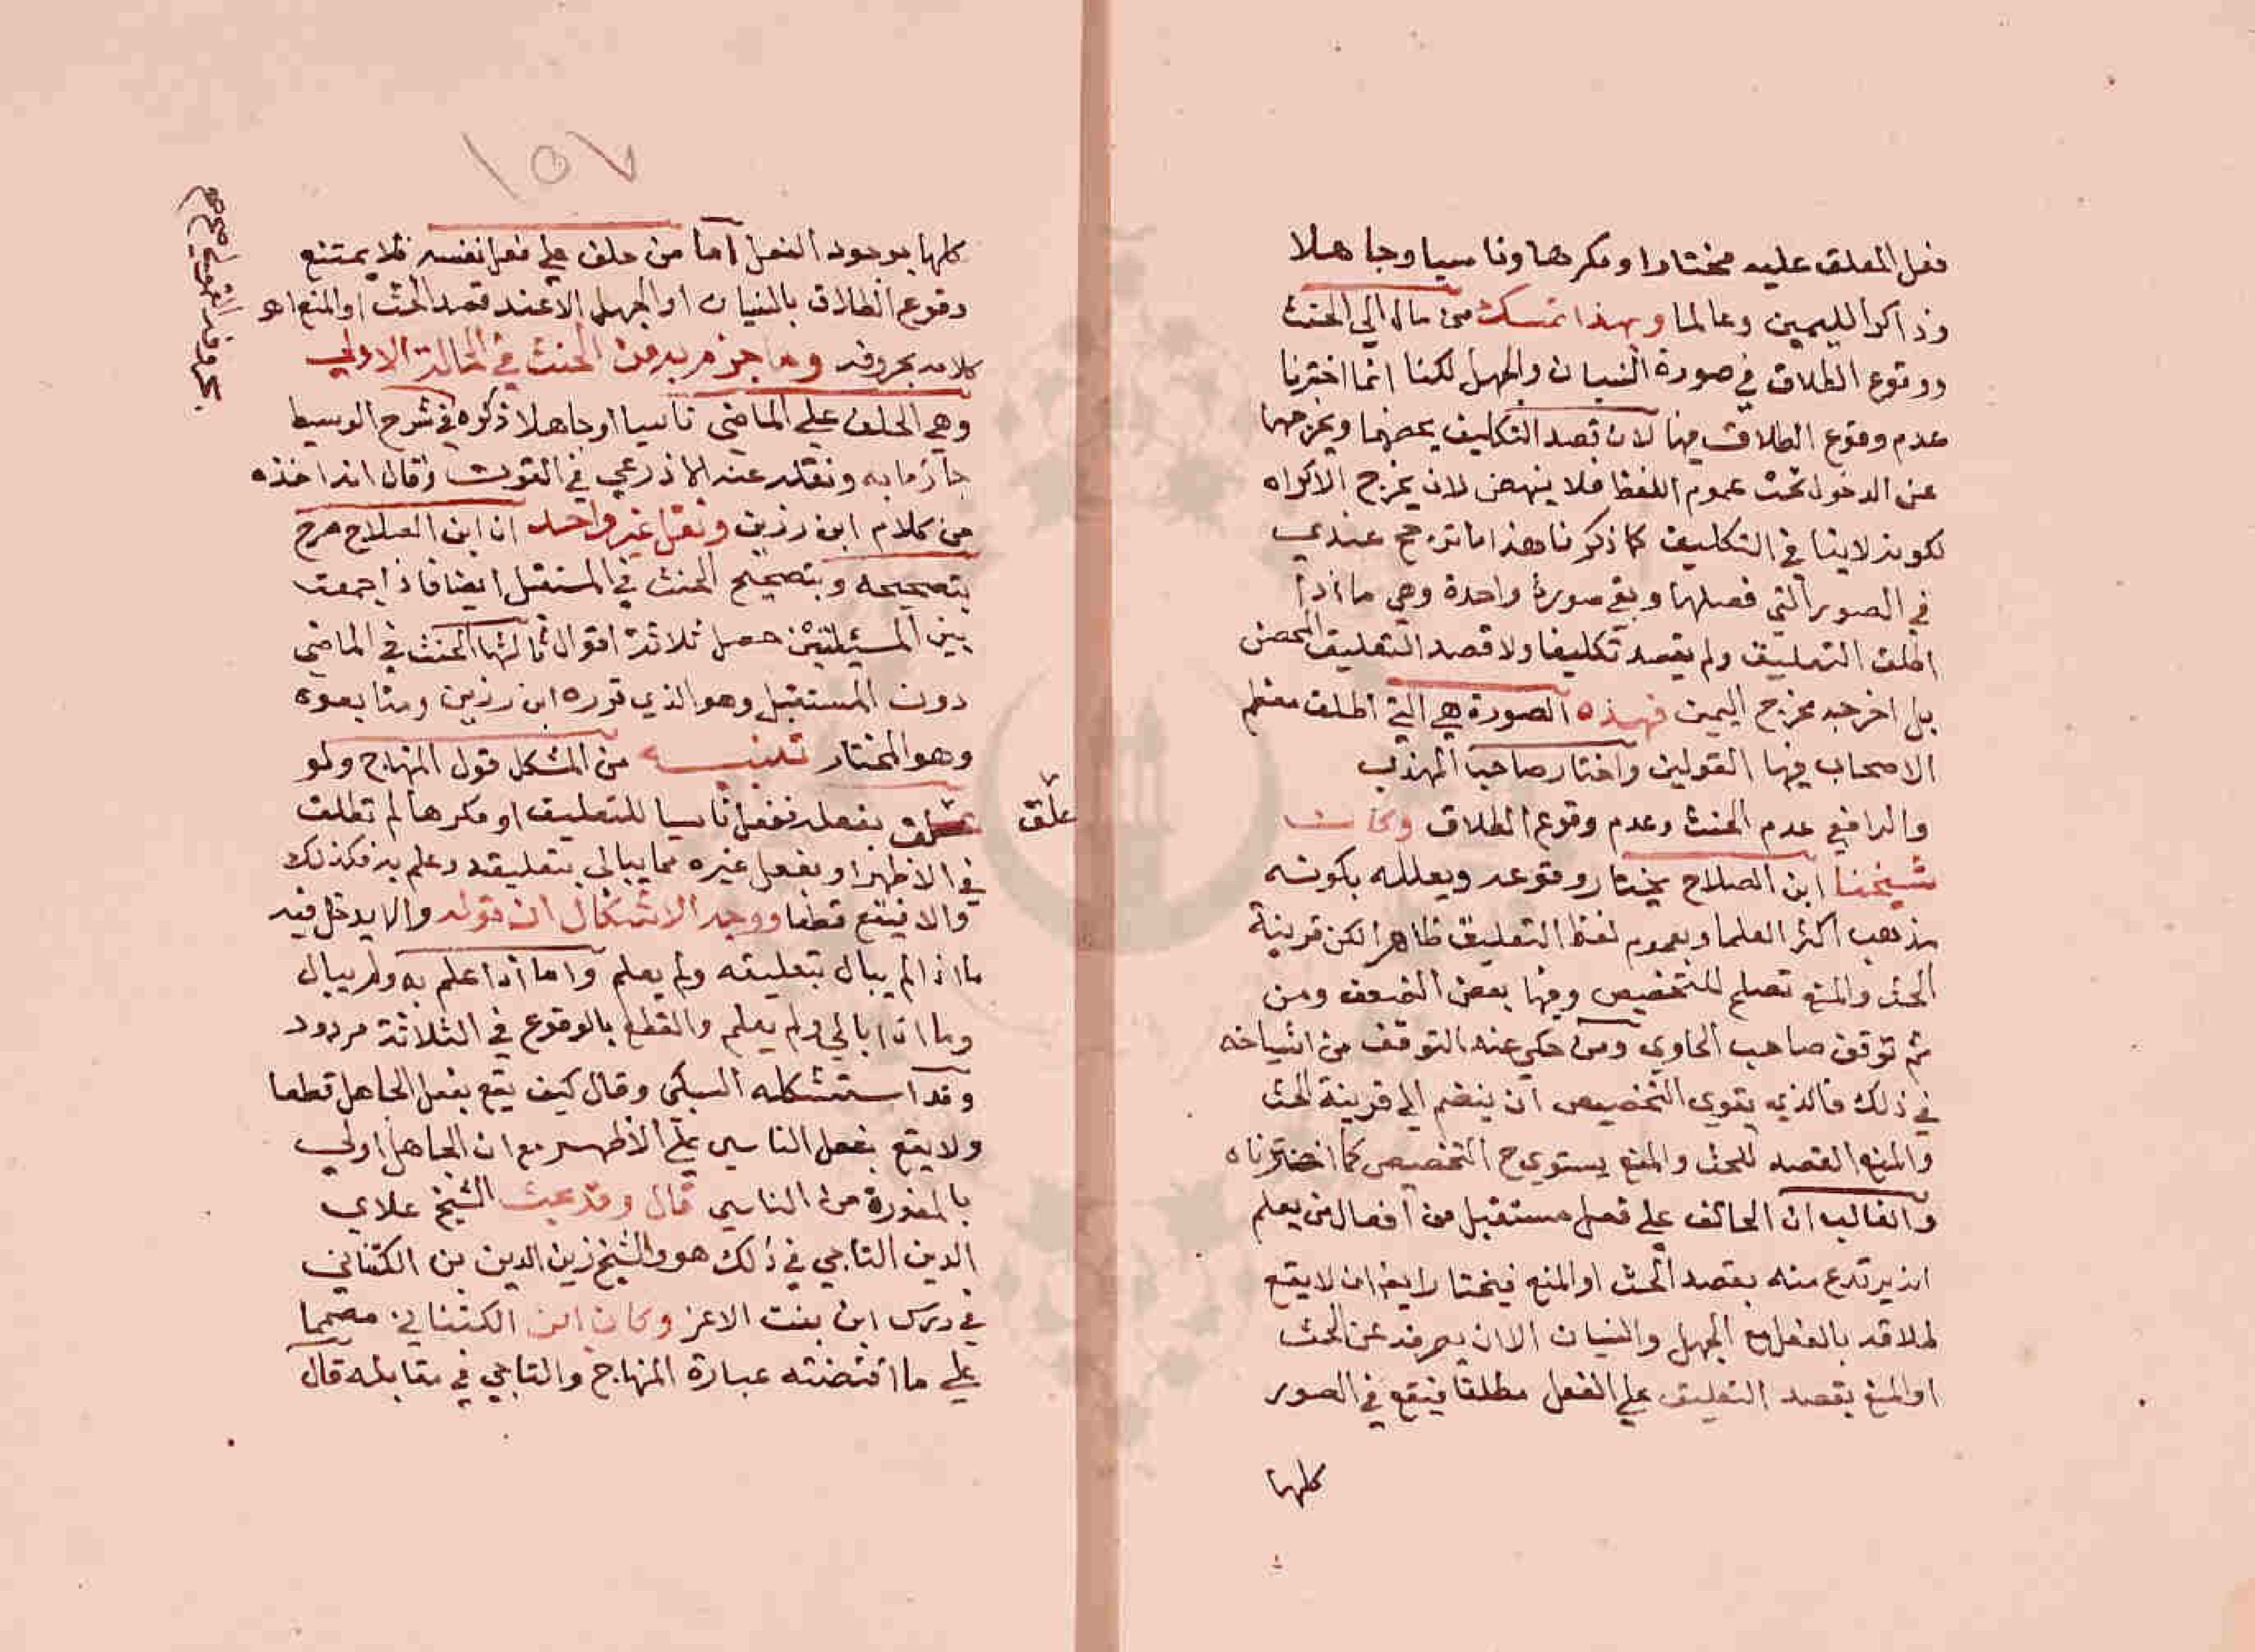 فعل المعلق عليه مختارا ومكرها وناسيا وجاهلا
وذاكرا لليمين وعالما وبهذا تمسك من مال الي الحنث
ووقوع الطلاق في صورة النسيان والجهل لكنا انما اخترنا
عدم وقوع الطلاق فيها لان قصد التكليف يخصهما ويخرجهما
عن الدخول تحت عموم اللفظ فلا ينهض لان يخرج الاكراه
لكونه لاينا في التكليف كما ذكرنا هذا ما ترجح عندي
في الصور التي فصلها وبقي صورة واحدة وهي ما اذا
اطلق التعليق ولم يقصد تكليفا ولا قصد التعليق المحض
بل اخرجه مخرج اليمين فهذه الصورة هي التي اطلق معظم
الاصحاب فيها القولين واختار صاحب المهذب
والرافعي عدم الحنث وعدم وقوع الطلاق وكان
شيخنا ابن الصلاح يختار وقوعه ويعلله بكونه
مذهب اكثر العلما وبعموم لفظ التعليق ظاهرا لكن قرينة
الحث والمنع تصلح للتخصيص وفيها بعض الضعف ومن
ثم توقف صاحب الحاوي ومن حكي عنه التوقف من اشياخه
في ذلك فالذي يقوي التخصيص ان ينضم الي قرينة الحث
والمنع القصد للحث والمنع يستوي ح التخصيص كما اخترناه
والغالب ان الحالف علي فعل مستقبل من افعال من يعلم
انه يرتدع منه بقصد الحث او المنع فيختار ايضا ان لا يقع
طلاقه بالفعل مع الجهل والنسيان الا ان يصرفه عن الحث
او المنع بقصد التعليق علي الفعل مطلقا فيقع في الصور
كلها
١٥٧
كلها بوجود الفعل اما من حلف علي فعل نفسه فلا يمتنع
وقوع الطلاق بالنسيان او الجهل الا عند قصد الحث او المنع اهـ
كلامه بحروفه وما جزم به من الحنث في الحالة الاولي
وهي الحلف علي الماضي ناسيا او جاهلا ذكره في شرح الوسيط
جازما به ونقله عنه الاذرعي في القوت وقال انه اخذه
من كلام ابن رزين ونقل غير واحد ان ابن الصلاح صرح
بتصحيحه وبتصحيح الحنث في المستقبل ايضا فاذا جمعت
بين المسئلتين حصل ثلاثة اقوال ثالثها الحنث في الماضي
دون المستقبل وهو الذي قرره ابن رزين ومتابعوه
وهو المختار تنبيه من المشكل قول المنهاج ولو
علق
علق بفعله ففعل ناسيا للتعليق او مكرها لم تطلق
في الاظهر او بفعل غيره مما يبالي بتعليقه وعلم به فكذلك
والا فيقع قطعا ووجه الاشكال ان قوله والا يدخل فيه
ما اذا لم يبال بتعليقه ولم يعلم واما اذا علم به ولم يبال
وما اذا بالي ولم يعلم والقطع بالوقوع في الثلاثة مردود
وقد استشكله السبكي وقال كيف يقع بفعل الجاهل قطعا
ولا يقع بفعل الناسي علي الاظهر مع ان الجاهل اولي
بالمعذرة من الناسي قال وقد بحث الشيخ علاي
الدين الباجي في ذلك هو والشيخ زين الدين بن الكتناني
في درس ابن بنت الاعز وكان ابن الكتناني مصمما
علي ما اقتضته عبارة المنهاج والباجي في مقابله قال